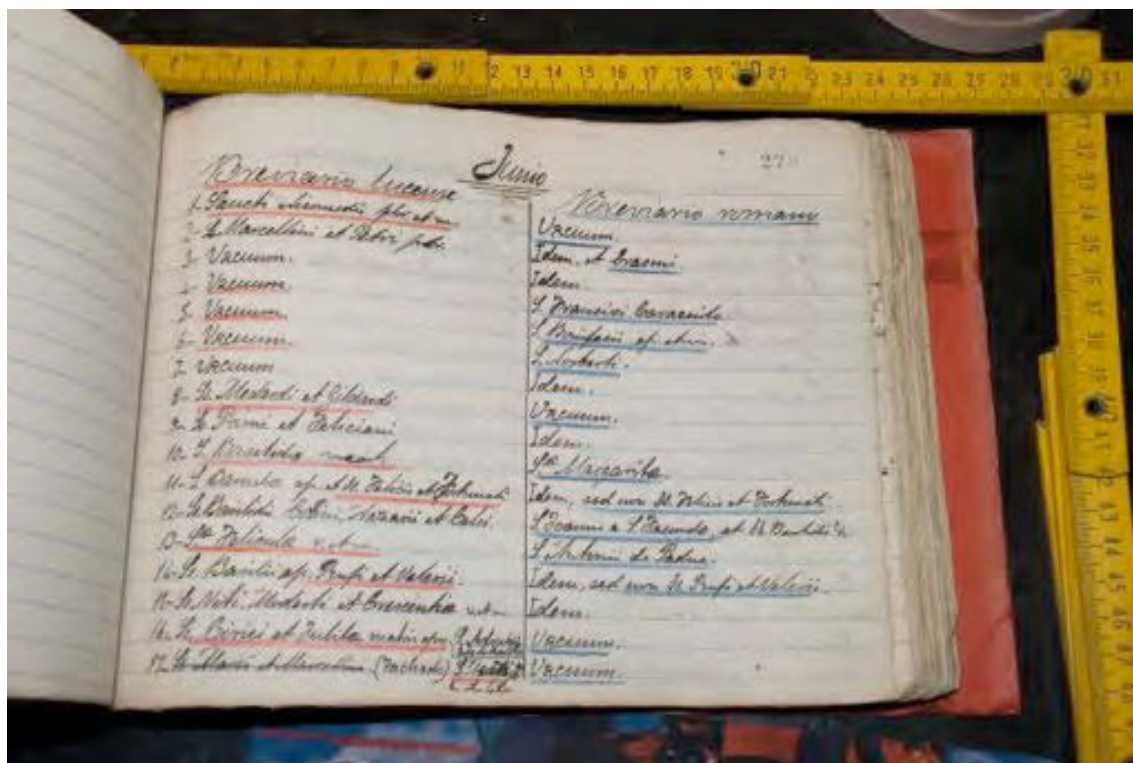 Junio
27
Breviario lucense
1- Sancti Nicomedis pbr. et m.
2- S. Marcellini et Petri pbr.
3- Vacuum.
4- Vacuum.
5- Vacuum.
6- Vacuum.
7- Vacuum
8- S. Medardi et Gildardi
9- S. Primi et Feliciani
10- S.
11- S. Barnabe ap. et M. Felicis et Fortunati
12- S. Basilidis Cirini, Nazarii et Celsi.
13- Sta Felicula v. et m.
14- S. Basilii ep. Rufi et Valerii.
15- S. Viti, Modesti et Crescentia
16- S. Cirici et Julita
17- S. et Marcelliani (Tachado)
Breviario romano
Vacuum.
Idem, et Erasmi.
Idem
S. Francisci Caracciolo
S. Bonifacii
S. Norberti.
Idem.
Vacuum.
Idem.
Sta Margarita
Idem, sed non M. Felicis et Fortunati.
S. Joannis a S. Facundo, et M. Basilidis
S. Antonii de Padua.
Idem, sed non M. Rufi et Valerii.
Idem.
Vacuum.
Vacuum.
11 2 13 14 15 16 17 18 19 20 21